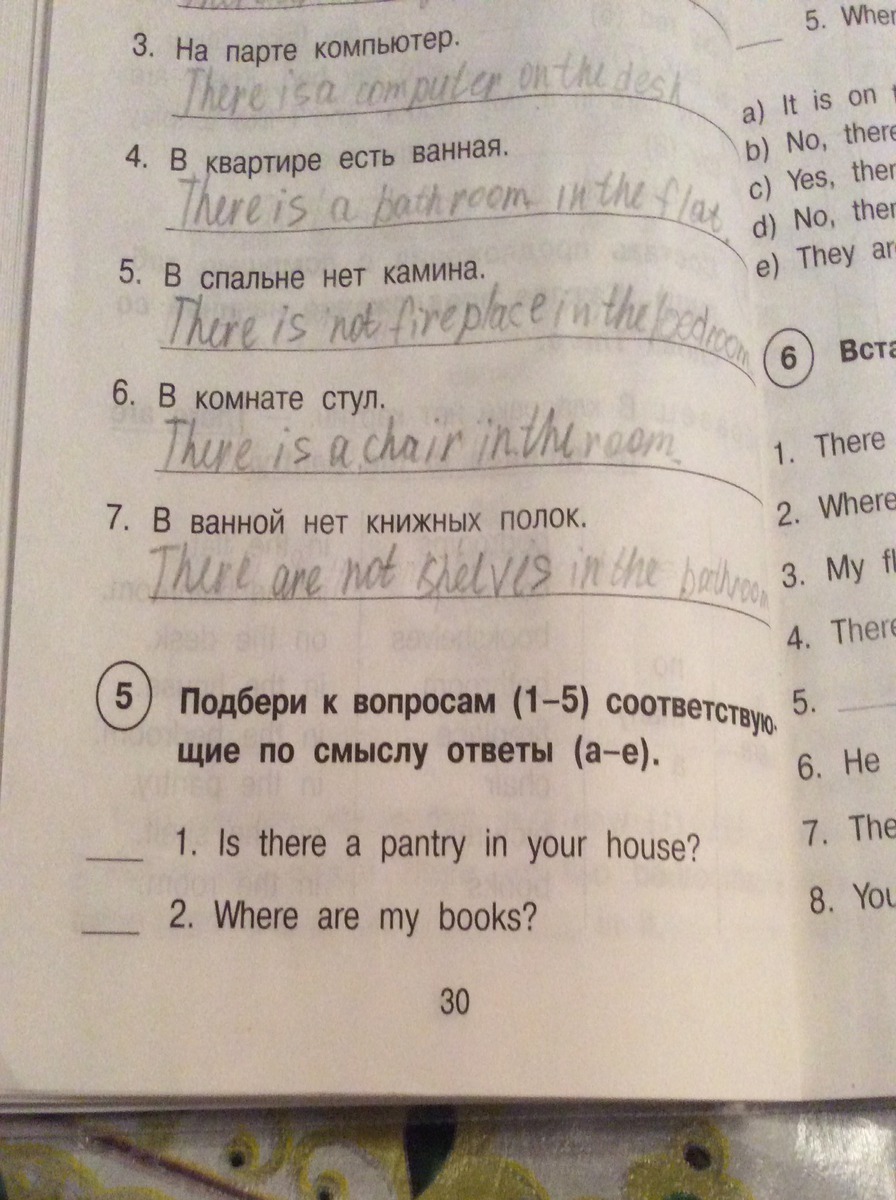 3. На парте компьютер.
There is a computer on the desk
4. В квартире есть ванная.
There is a bathroom in the flat.
5. В спальне нет камина.
There is not fireplace in the bedroom
6. В комнате стул.
There is a chair in the room.
7. В ванной нет книжных полок.
There are not shelves in the bathroom
5 Подбери к вопросам (1–5) соответствую-
щие по смыслу ответы (a–e).
1. Is there a pantry in your house?
2. Where are my books?
30
5.
a) It is on
b) No, there
c) Yes,
d) No,
e) They
6
1. There
2. Where
3. My
4. There
5.
6. He
7.
8.